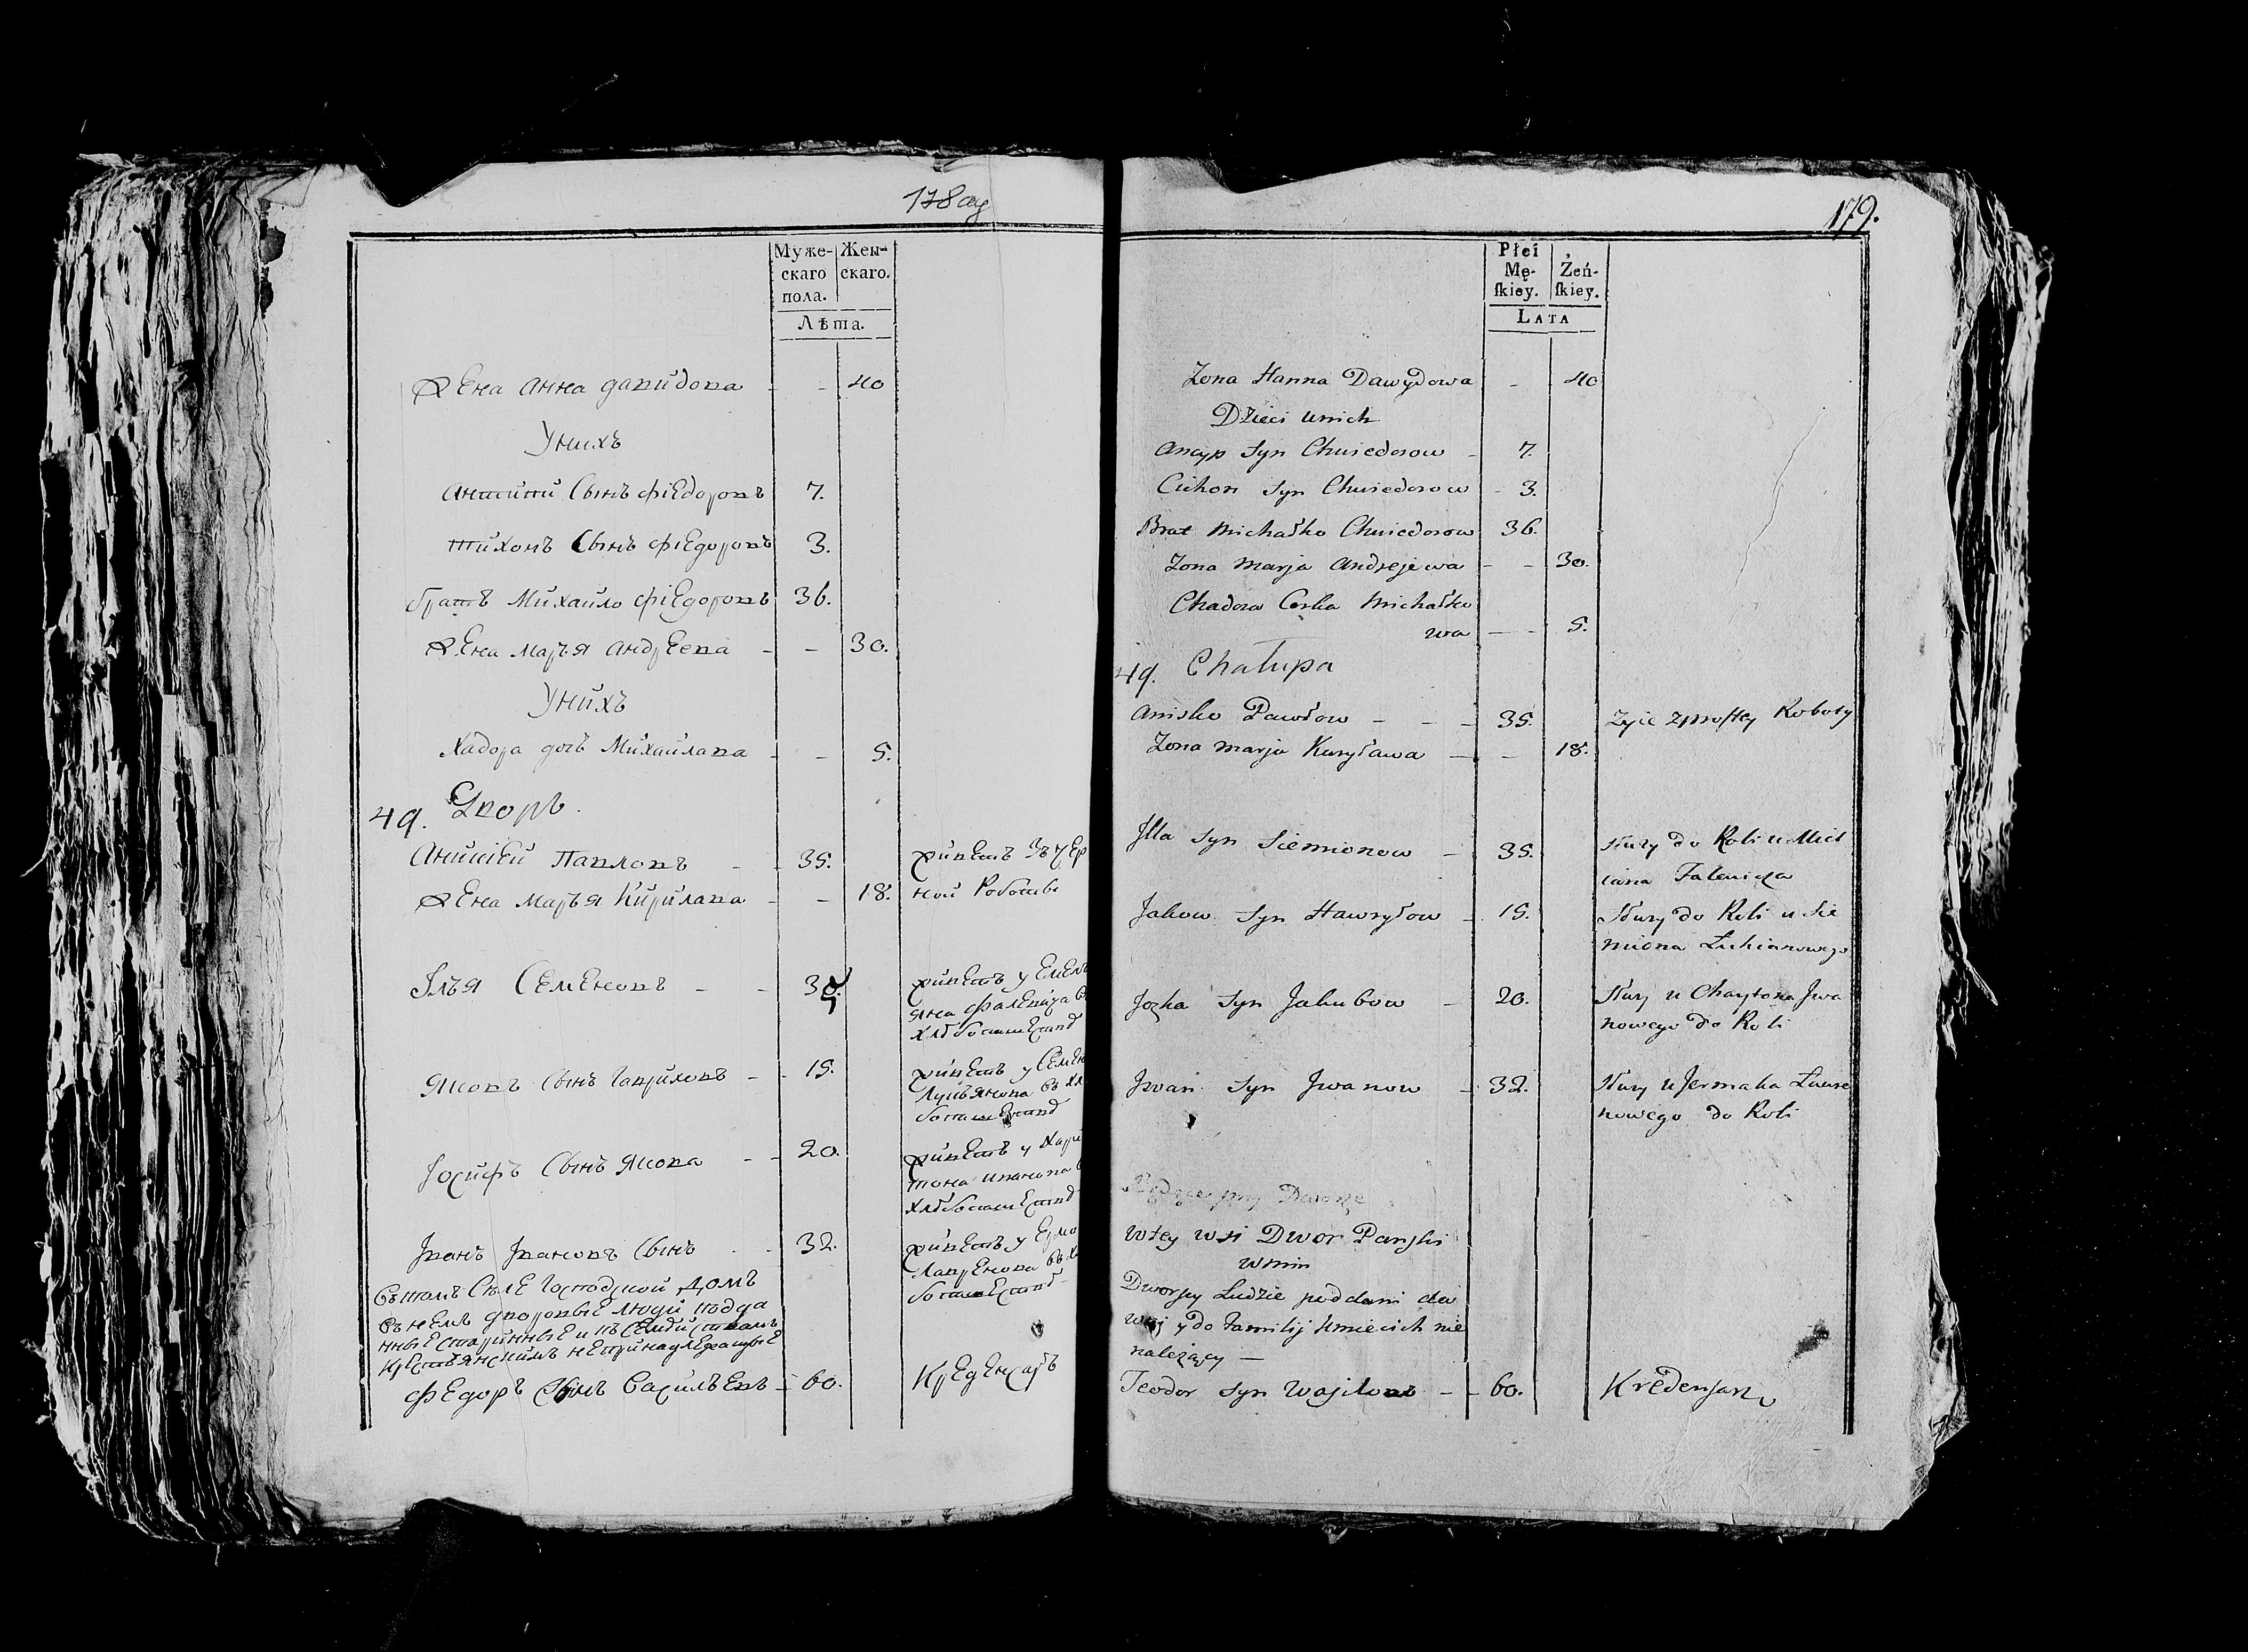 178 об
Муже- Жен-
скаго скаго.
пола.
Лѣта.
Жена Анна давидова - - 40
У нихъ
Антипи Сынъ фіедоровъ 7.
тихонъ Сынъ фіедоровъ 3.
братъ Михайло фіедоровъ 36.
Жена Марья андреева - - 30.
У нихъ
Хадора дочь Михайлава - - 5.
49. Дворъ.
Анисіей Павловъ - - 35. живетъ зъ чер
Жена Марья Кирилава - - 18. ной Роботы
Илья Семеновъ - - 35. живетъ у Емель
яна фалевича в
хлѣбопашествѣ
Яковъ Сынъ Гавриловъ - - 15. живетъ у Семен
Лукьянова въ хл
бопашествѣ
Іосифъ Сынъ Якова - - 20. живетъ у Хари
тона иванова в
хлѣбопашествѣ
Іванъ Івановъ Сынъ - - 32. живетъ у Ермо
Лавренова въ х
бопашествѣ
Въ томъ Селе Господской Домъ
въ немъ дворовые люди подда
нные старинные и къ Семействамъ
Крестьянскимъ непринадлежащые
Федоръ Сынъ Васильевъ - 60. Креденсаръ
179.
Płci
Mę- Żeń-
ſkiey. ſkiey.
LATA
Zona Hanna Dawydowa - 40
Dzieci unich
Ancyp Syn Chwiedorow - 7.
Cichon Syn Chwiedorow - 3.
Brat Michałko Chwiedorow 36.
Zona Marja Andrejewa - - 30.
Chadora Corka Michałko
wa - - 5.
49. Chałupa
Anisko Pawłow - - - 35. Zyie zprostey Roboty
Zona Marja Kuryława - - 18.
Jlla Syn Siemionow - 35. Słuzy do Roli u Mieł
iana Falewicza
Jakow Syn Hawryłow - 15. Słuzy do Roli u Sie
miona Łukianowego
Jozka Syn Jakubow - 20. Słuzy u Charytona Jwa
nowego do Roli
Jwan Syn Jwanow - 32. Słuzy u Jermaka Ławre
nowego do Roli
przy Dworze
wtey wsi Dwor Panski
wnim
Dworscy Ludzie poddani da
wni y do Familij kmiecich nie
nalezący —
Teodor Syn Wasilow - - 60. Kredensarz